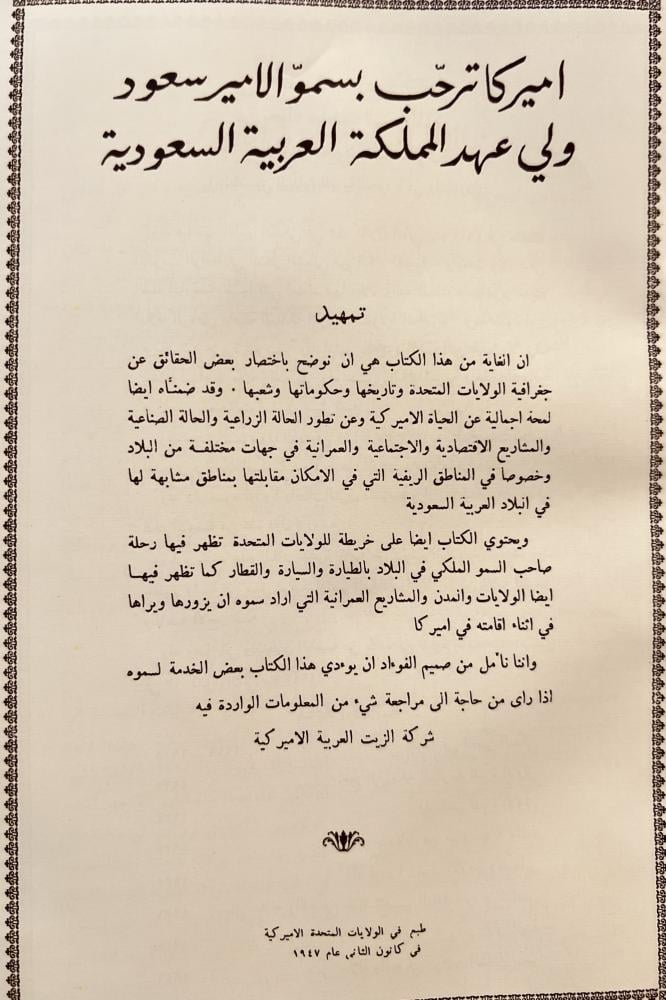 اميركا ترحّب بسموّ الامير سعود
ولي عهد المملكة العربية السعودية
تمهيد
ان الغاية من هذا الكتاب هي ان نوضح باختصار بعض الحقائق عن
جغرافية الولايات المتحدة وتاريخها وحكوماتها وشعبها . وقد ضمنّاه ايضا
لمحة اجمالية عن الحياة الاميركية وعن تطور الحالة الزراعية والحالة الصناعية
والمشاريع الاقتصادية والاجتماعية والعمرانية في جهات مختلفة من البلاد
وخصوصا في المناطق الريفية التي في الامكان مقابلتها بمناطق مشابهة لها
في البلاد العربية السعودية
ويحتوي الكتاب ايضا على خريطة للولايات المتحدة تظهر فيها رحلة
صاحب السمو الملكي في البلاد بالطيارة والسيارة والقطار كما تظهر فيها
ايضا الولايات والمدن والمشاريع العمرانية التي اراد سموه ان يزورها ويراها
في اثناء اقامته في اميركا
واننا نأمل من صميم الفوءاد ان يوءدي هذا الكتاب بعض الخدمة لسموه
اذا راى من حاجة الى مراجعة شيء من المعلومات الواردة فيه
شركة الزيت العربية الاميركية
طبع في الولايات المتحدة الاميركية
في كانون الثاني عام ١٩٤٧